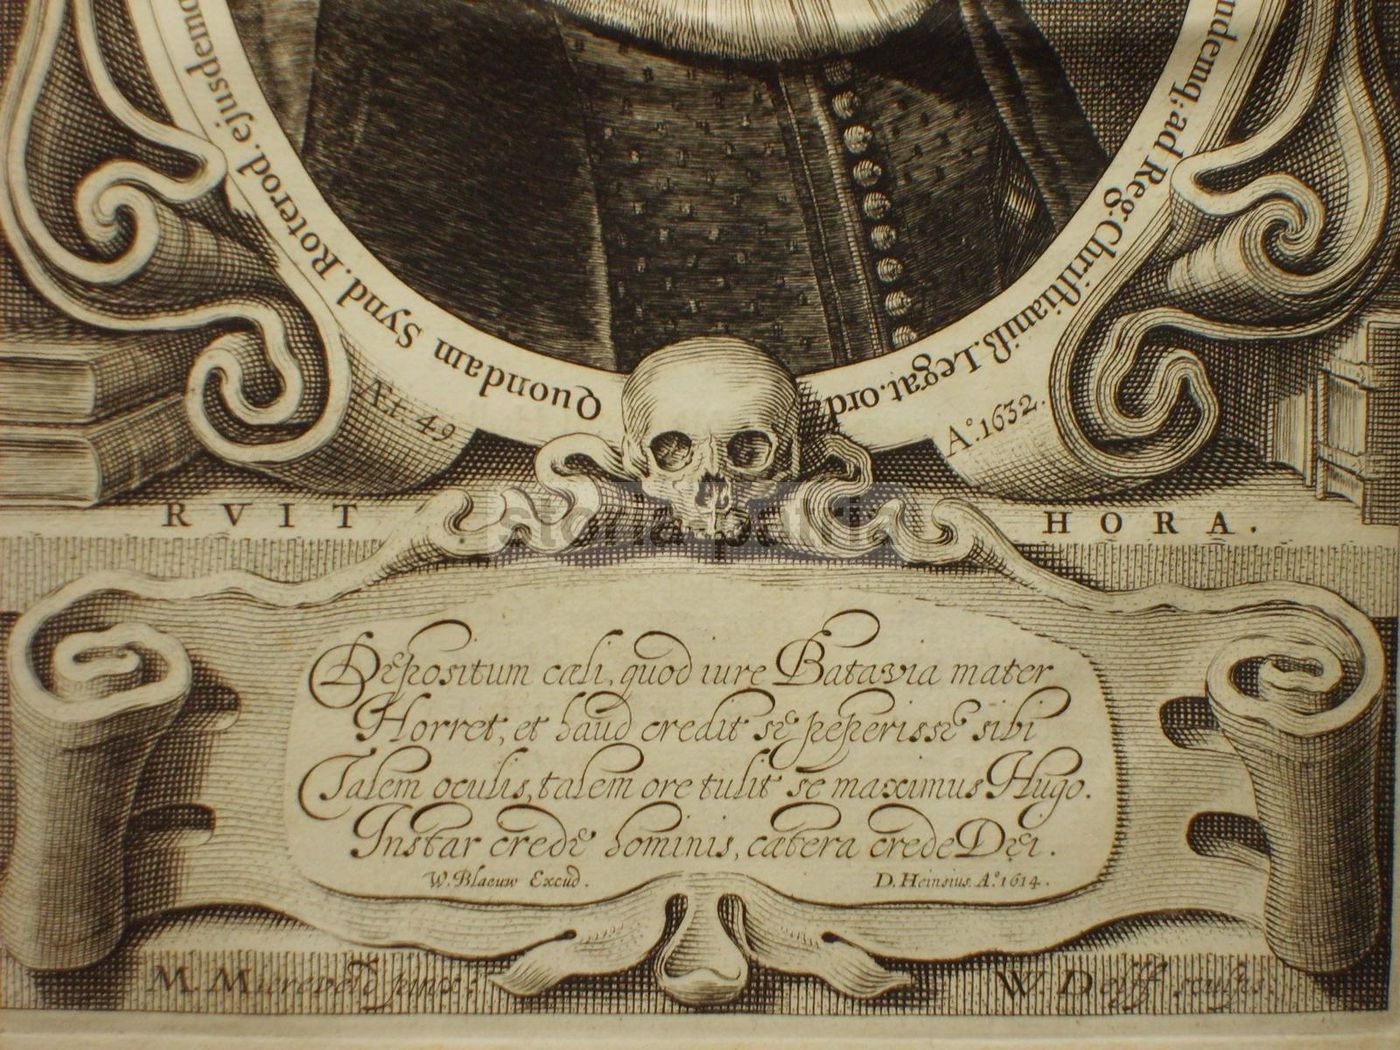 Quondam Synd. Roterod. ejusdemq
undemq; ad Reg. Christianiß. Legat. ord.
Æt. 49
A.º 1632.
RVIT HORA.
storia patria
Depositum cæli, quod iure Batavia mater
Horret, et haud credit se peperisse sibi
Talem oculis, talem ore tulit se maximus Hugo.
Instar crede hominis, cætera crede Dei.
W. Blaeuw Excud.
D. Heinsius. A.º 1614.
M. Miereveld pinx:
W. Delff sculps.